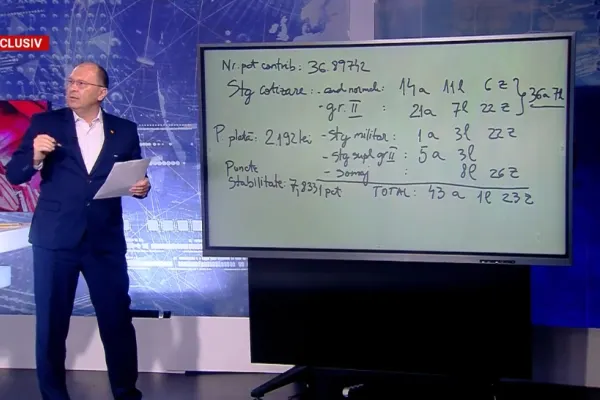 CLUSIV
Nr. pct contrib: 36.89742
Stg cotizare: - cond normal: 14a 11l 6z
- gr. II : 21a 7l 22z
36a 7l
P. plată: 2.192 lei - Stg militar : 1a 3l 22z
- stg supl gr II : 5a 3l
- Somaj 8l 26z
Puncte
Stabilitate: 7,8331 pct
TOTAL: 43a 1l 23z